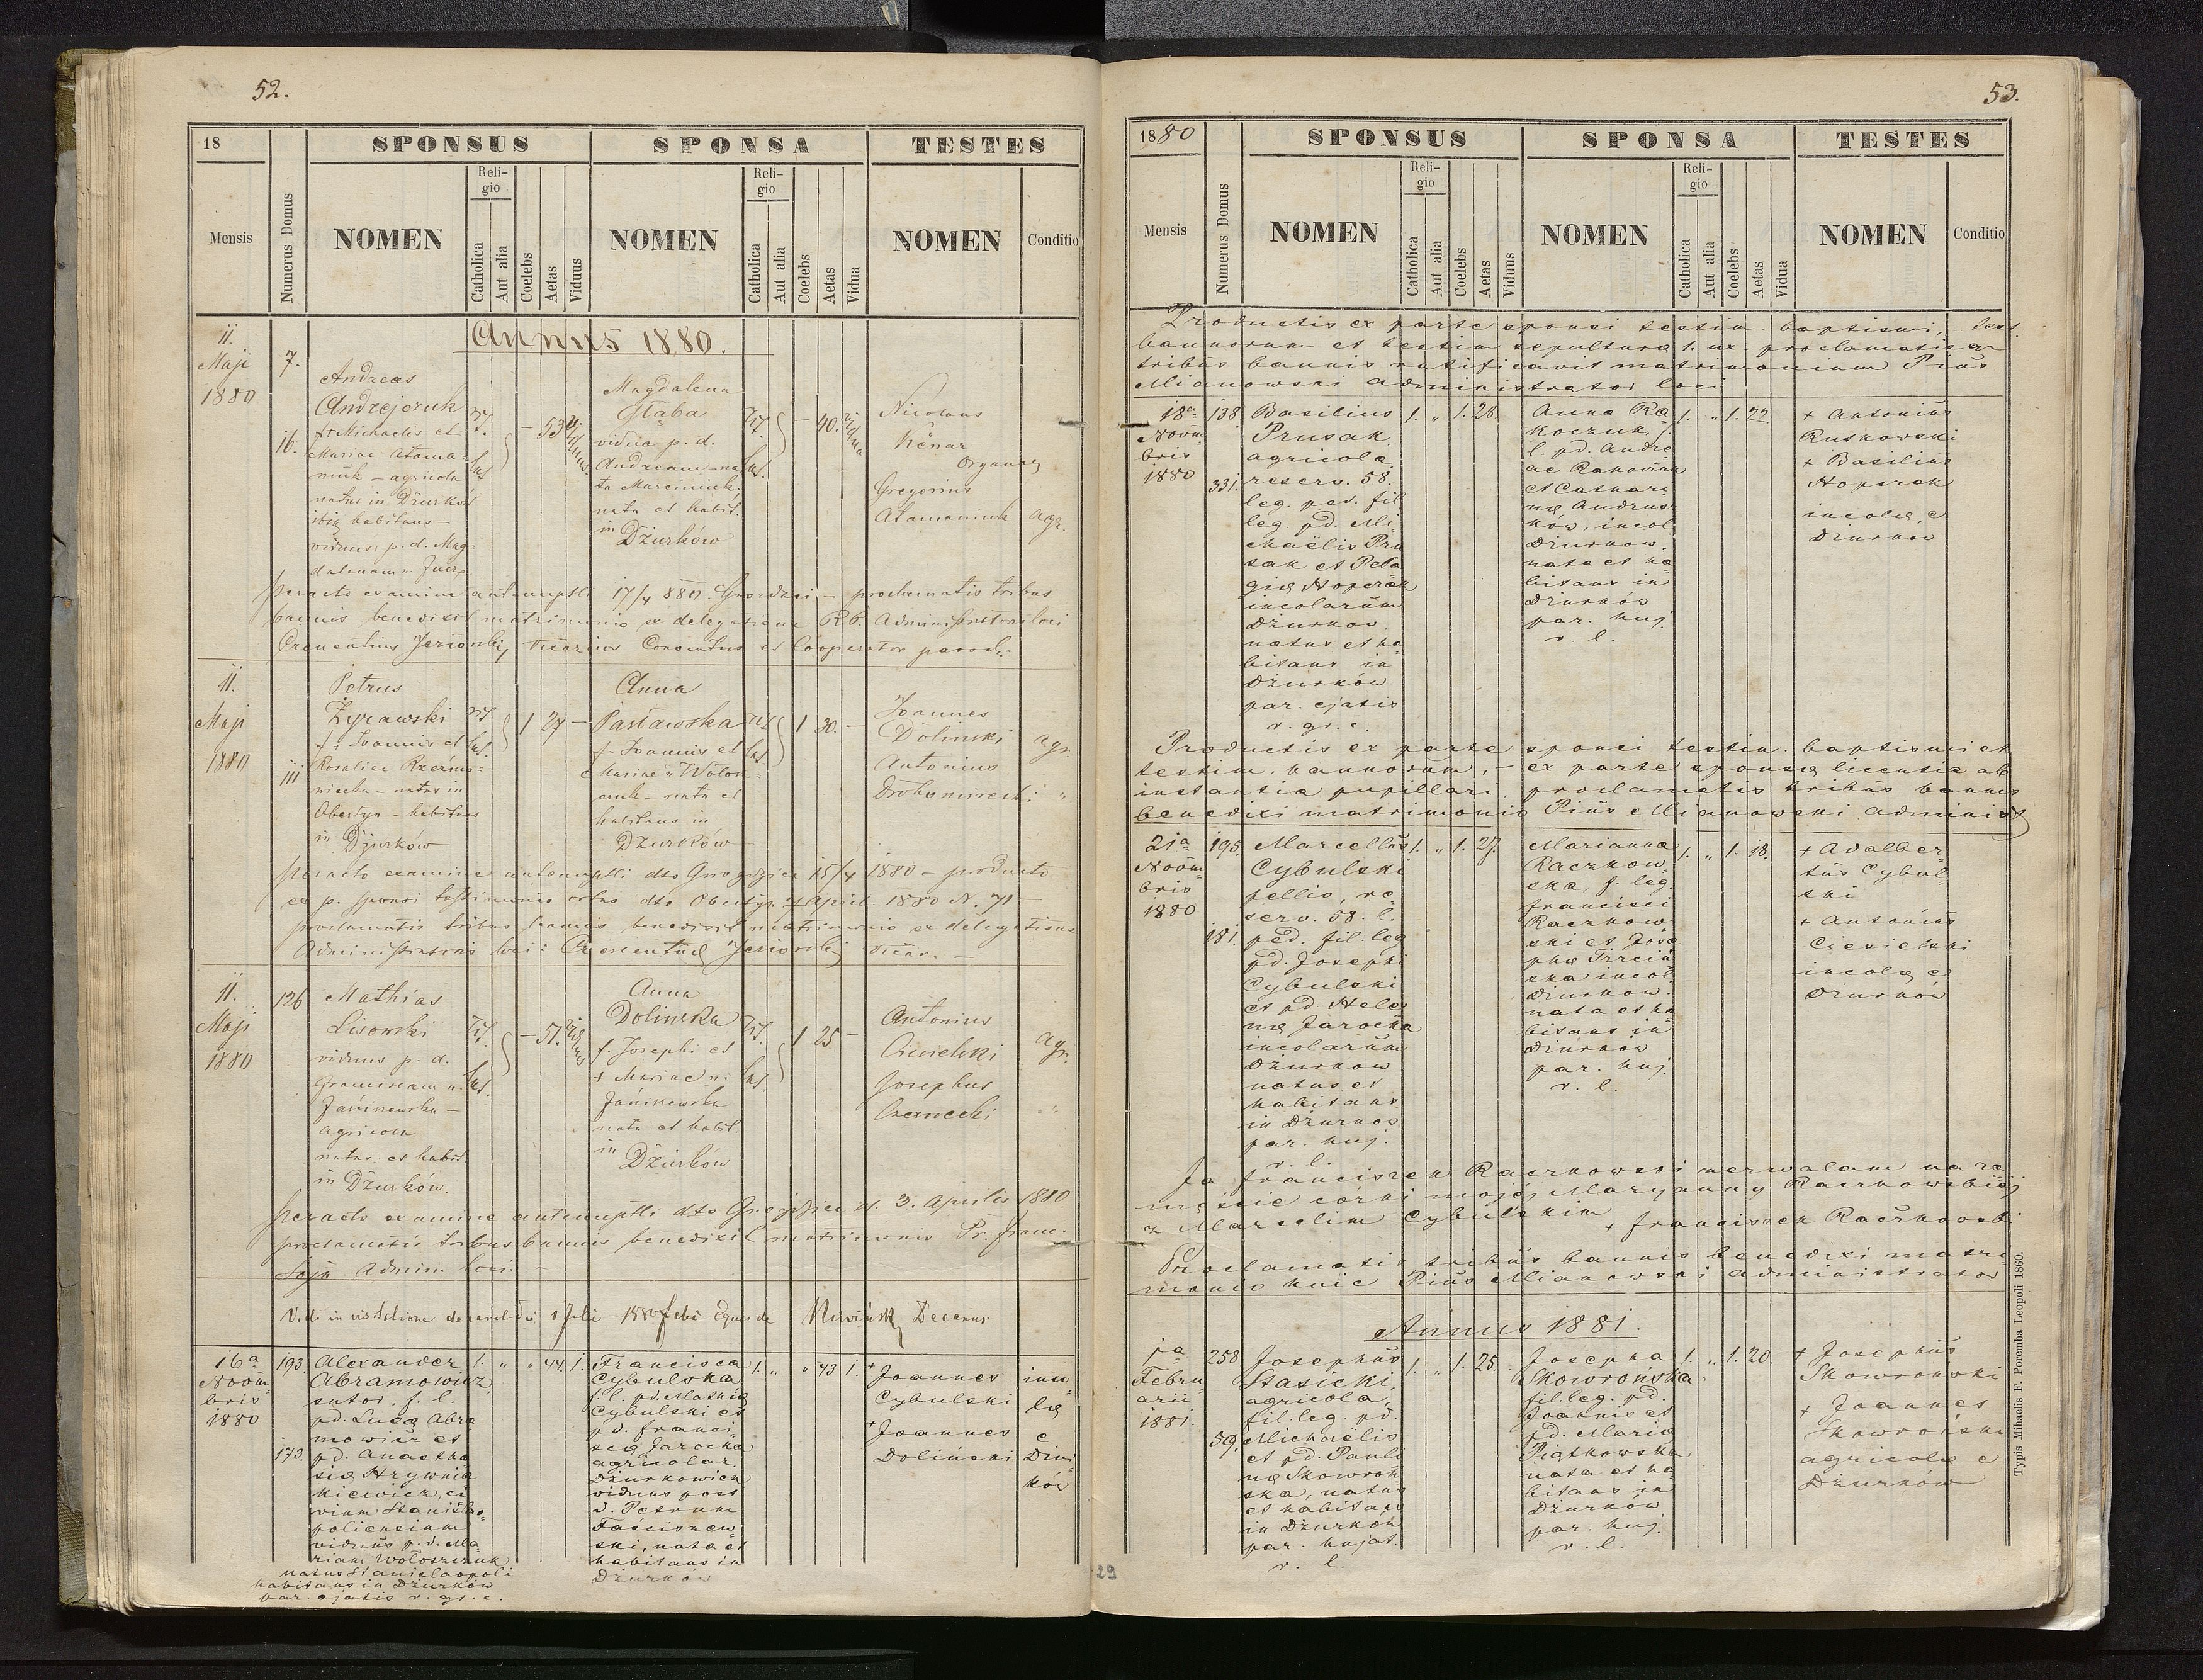 52.
18
SPONSUS
SPONSA
TESTES
Mensis
Numerus Domus
NOMEN
Reli-
gio
Catholica
Aut alia
Coelebs
Aetas
Viduus
NOMEN
Reli-
gio
Catholica
Aut alia
Coelebs
Aetas
Vidua
NOMEN
Conditio
Annus 1880.
11.
Maji
1880
7.
16.
Andreas
Andrejczuk
f. + Michaelis et
Mariae Atama-
niuk - agricola
natus in Dżurków
ibiq habitans -
viduus p. d. Mag-
dalenam
rit.
lat.
- 53
viduus
Magdalena
Słaba
vidua p. d.
Andream - na-
ta Marciniuk,
nata et habit.
in
Dżurków
rit.
lat.
- 40.
vidua
Nicolaus
Kenar
Organar
Gregorius
Atamaniuk agr.
peracto examine antenuptli 17/4 880. Gwozdzei - proclamatis tribus
bannis benedixit matrimonio ex delegatione R. P. Administratoris loci
Crementius Jeziorski, Vicarius Conventus et Cooperator paroch.
11.
Maji
1880
111
Petrus
Żyrawski
f. + Joannis et
Rosaliae
natus in
Obertyn - habitans
in Dżurków
rit.
lat.
1 27 -
Anna
Pasławska
f. Joannis et
Mariae
- nata et
habitans in
Dżurków
rit.
lat.
1 30. -
Joannes
Doliński
agr.
Antonius
Drohomirecki "
peracto examine antenuptli dto Gwozdziec 15/4 1880 - producto
ex p. sponsi testimonio ortus dto Obertyn 7 April. 1880 N. 71 -
proclamatis tribus bannis benedixit matrimonio ex delegatione
Administratoris loci: Crementius Jeziorski Vicar. -
11.
Maji
1880
126
Mathias
Lisowski
viduus p. d.
Franciscam n.
Janiszewska -
agricola
natus et habit.
in Dżurków.
rit.
lat.
- 51.
viduus
Anna
Dolinska
f. Josephi et
+ Mariae n.
Janiszewska
nata et habit.
in
Dżurków
rit.
lat.
1 25 -
Antonius
Ciesielski
agr.
Josephus
Czernecki
peracto examine antenuptli dto Gwozdziec d. 3. Aprilis 1880
proclamatis tribus bannis benedixit matrimonio Pr. Franc.
Soja Admin. loci -
Vidi in visitatione decanali die 1 Juli 1880 Decanus
16a
Novem-
bris
1880
193
173.
Alexander
Abramowicz
sutor, f. l.
pd. Lucæ Abra
mowicz et
pd. Anastha
siæ Hrywnia
kiewicz, ci
vium Stanislao-
poliensium
viduus p. d. Ma-
riam Wołoszczuk
natus Stanislaopoli
habitans in Dżurków
par. ejatis r. gr. c.
1. " " 44. 1.
Francisca
Cybulska
f. l. pd. Mathiæ
Cybulski et
pd. Franci-
scæ Jarocka
agricolar.
Dżurkowien
vidua post
d. Petrum
Faściszew-
ski, nata et
habitans in
Dżurków
1. " " 43 1.
+ Joannes
Cybulski
+ Joannes
Doliński
inco-
læ
e
Dżur-
ków
53.
1880
SPONSUS
SPONSA
TESTES
Mensis
Numerus Domus
NOMEN
Reli-
gio
Catholica
Aut alia
Coelebs
Aetas
Viduus
NOMEN
Reli-
gio
Catholica
Aut alia
Coelebs
Aetas
Vidua
NOMEN
Conditio
Productis ex parte sponsi testim. baptismi, - test.
bannorum et testim sepulturæ 1. ux. proclamatisq
tribus bannis ratificavit matrimonium Pius
Mianowski administrator loci
18a
Novem
bris
1880
138.
331.
Basilius
Prusak
agricola
reserv. 58.
leg. ped. fil
leg. pd. Mi-
chaëlis Pru
sak et Pela
giæ Hoperak
incolarum
Dżurkow.
natus et ha-
bitans in
Dżurków
par. ejatis
r. gr. c.
1. " 1. 28.
Anna Ra
koczuk f.
l. pd. Andre-
ae Rakoczuk
et Cathari-
næ Andrus
ków, incol.
Dżurkow.
nata et ha-
bitans in
Dżurków
par. huj.
r. l.
1. " 1. 22
+ Antonius
Ruskowski
+ Basilius
Hoperak
incolæ, e
Dżurków
Productis ex parte sponsi testim. baptismi et
testim. bannorum, - ex parte sponsæ licentia ab
instantia pupillari, proclamatis tribus bannis
benedixi matrimonio Pius Mianowski administ
21a
Novem-
bris
1880
195.
181.
Marcellus
Cybulski
pellio, re-
serv. 58. l.
ped. fil. leg
pd. Josephi
Cybulski
et pd. Hele-
næ Jarocka
incolarum
Dżurkow
natus et
habitans
in Dżurków
par. huj.
r. l.
1. " 1. 27.
Marianna
Raczkow-
ska, f. leg.
Francisci
Raczkow-
ski et Jose-
phæ Trzciń
ska incol.
Dżurkow.
nata et ha-
bitans in
Dżurków
par. huj.
r. l.
1. " 1. 18.
+ Adalber-
tus Cybul-
ski
+ Antonius
Ciesielski
incolæ e
Dżurków
Ja Franciszek Raczkowski zezwalam na za-
mężcie córki mojéj Maryanny Raczkowskiéj
z Marcelim Cybulskim + Franciszek Raczkowski
Proclamatis tribus bannis benedixi matri-
monio huic Pius Mianowski administrator
Annus 1881.
1a
Febru-
arii
1881.
258
59.
Josephus
Stasicki,
agricola,
fil. leg. pd.
Michaëlis
et pd. Pauli-
næ Skowroń
ska, natus
et habitans
in Dżurków
par. hujat.
r. l.
1. " 1. 25.
Josepha
Skowrońska
fil. leg. pd.
Joannis et
pd. Mariæ
Piątkowska
nata et ha-
bitans in
Dżurków
par. huj.
r. l.
1. " 1. 20.
+ Josephus
Skowroński
+ Joannes
Skowroński
agricolæ e
Dżurków
Typis Mihaelis F. Poremba Leopoli 1860.
29